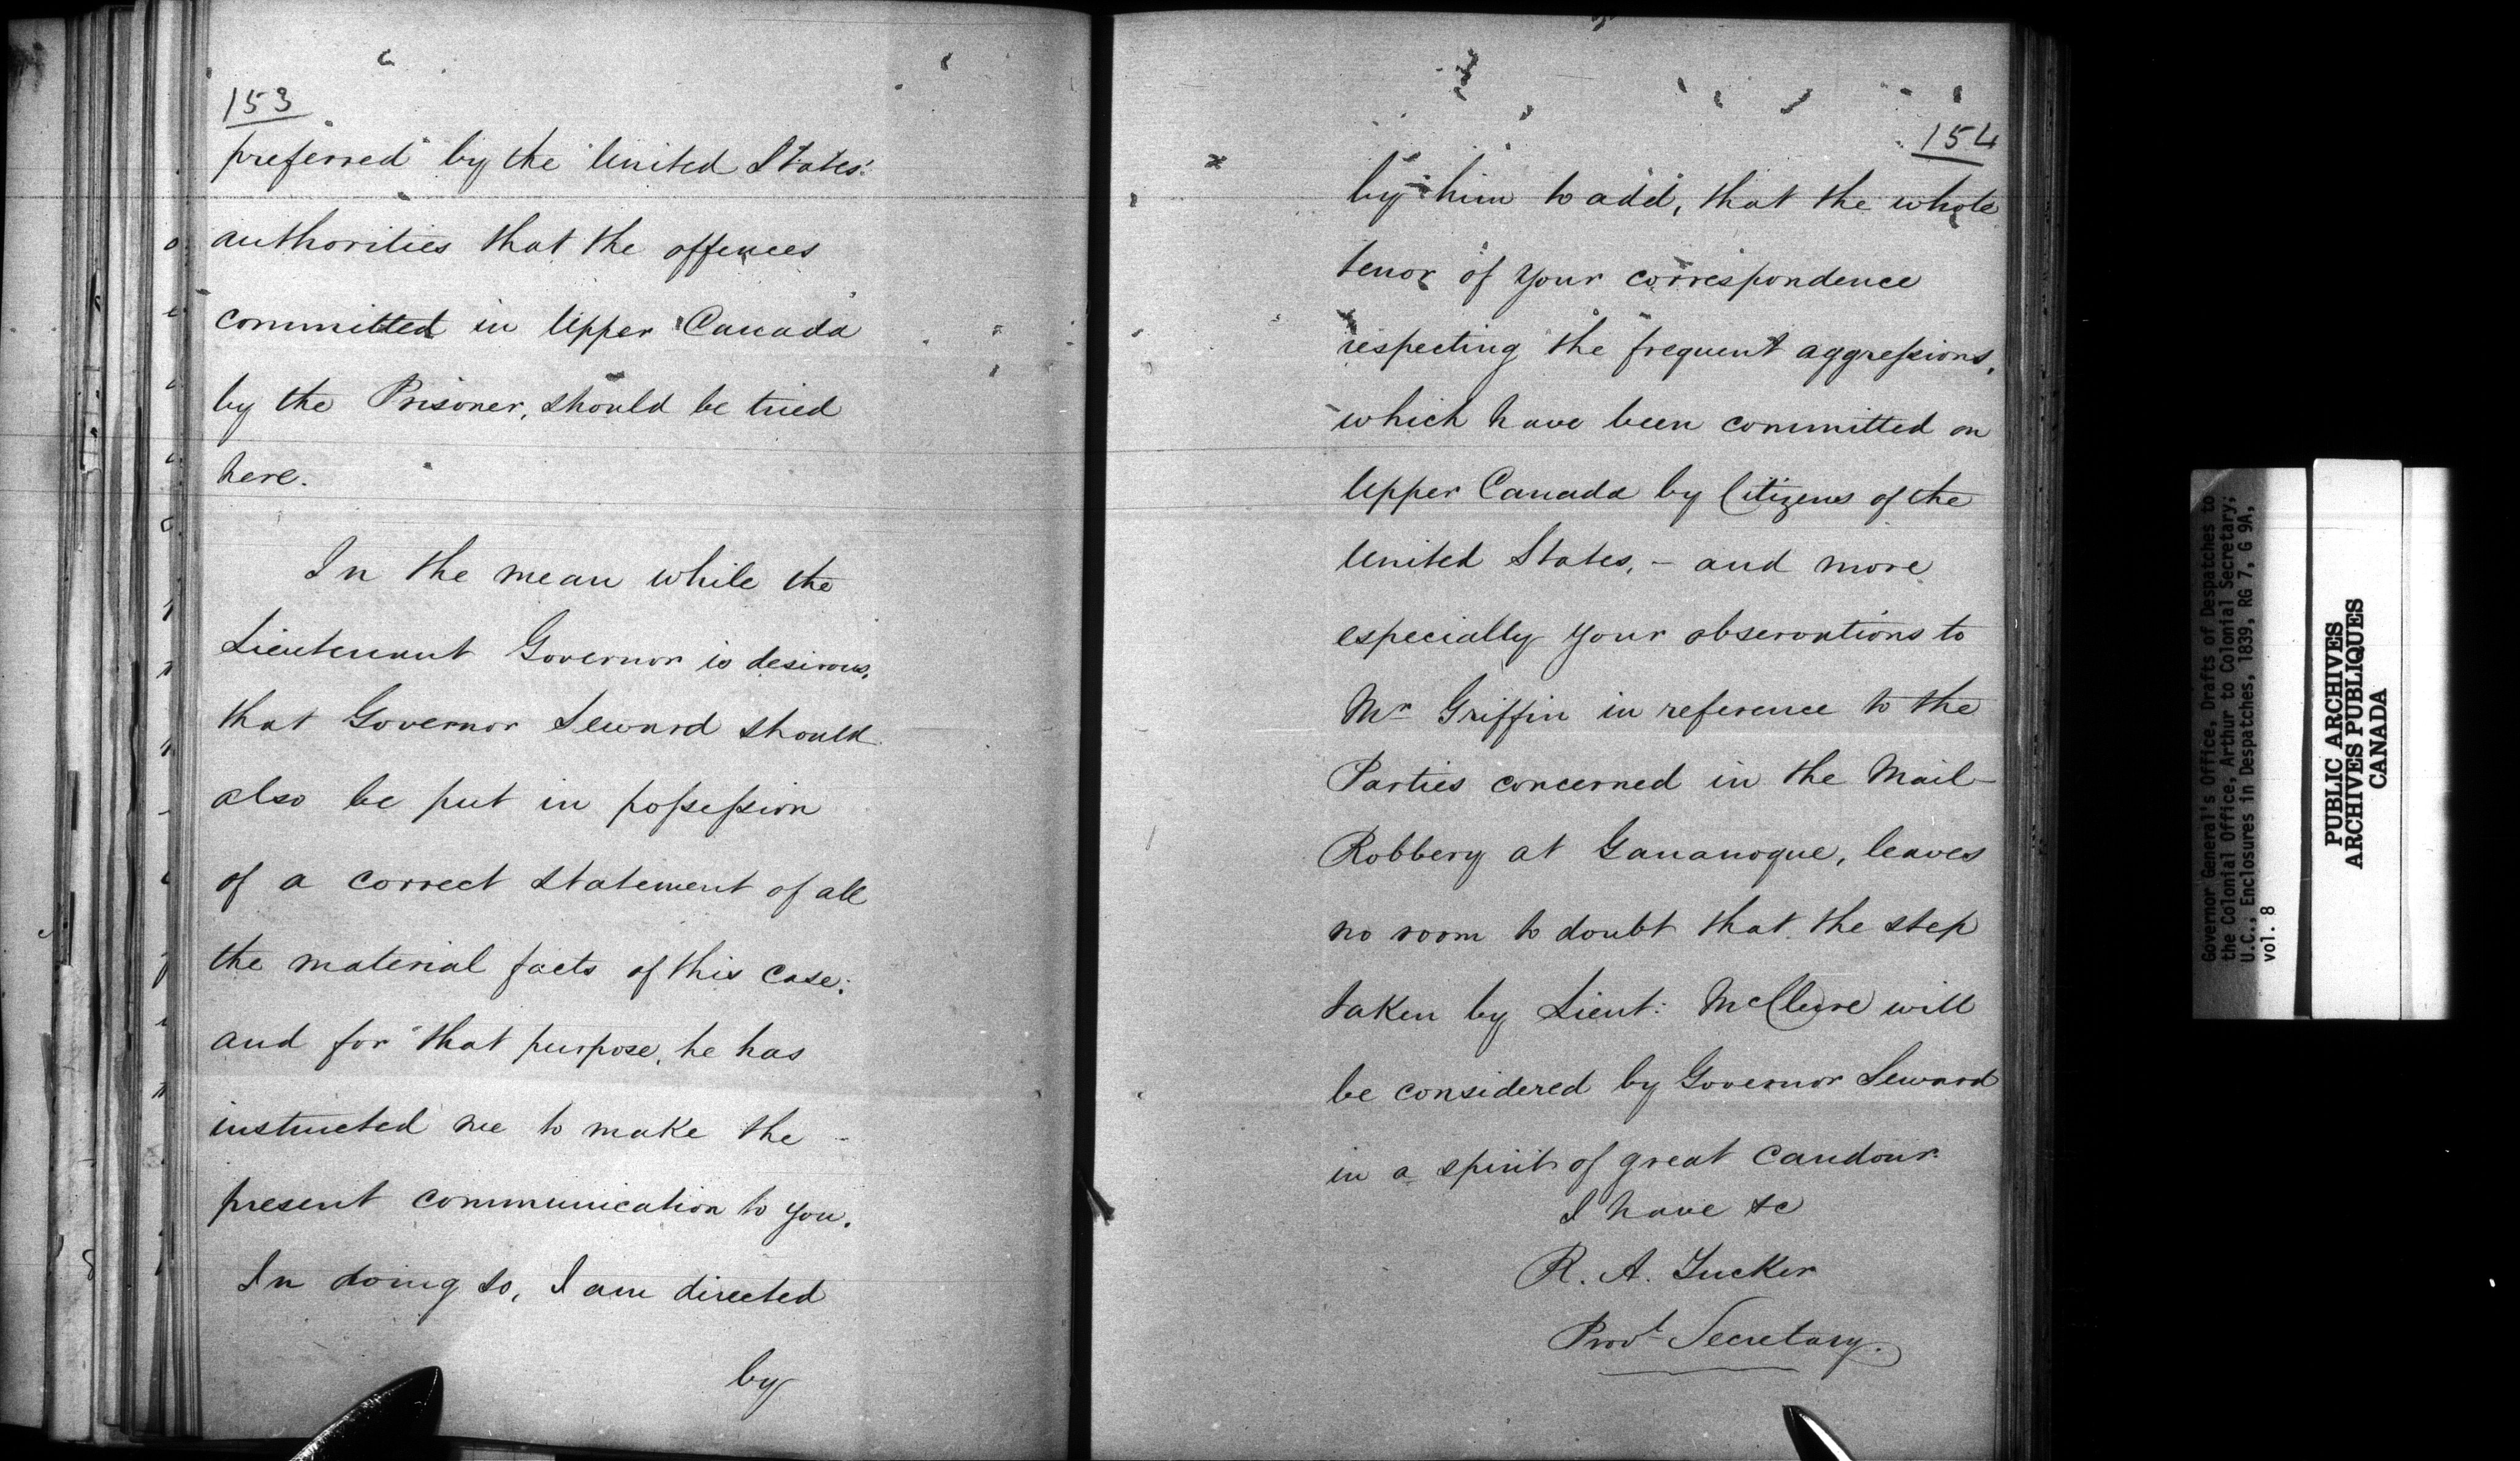 153
preferred by the United States'
authorities that the offences
committed in Upper Canada
by the Prisoner, should be tried
here.
In the mean while the
Lieutenant Governor is desirous,
that Governor Seward should
also be put in possession
of a correct statement of all
the material facts of this case:
and for that purpose, he has
instructed me to make the -
present communication to you.
In doing so, I am directed
by
154
by him to add, that the whole
tenor of your correspondence
respecting the frequent aggressions,
which have been committed on
Upper Canada by Citizens of the
United States, - and more
especially your observations to
Mr Griffin in reference to the
Parties concerned in the Mail-
Robbery at Gananoque, leaves
no room to doubt that the step
taken by Lieut: McClure will
be considered by Governor Seward
in a spirit of great candour.
I have &c
R. A. Tucker
Provl Secretary.
Governor General's Office, Drafts of Despatches to
the Colonial Office, Arthur to Colonial Secretary;
U.C., Enclosures in Despatches, 1839, RG 7, G 9A,
vol. 8
PUBLIC ARCHIVES
ARCHIVES PUBLIQUES
CANADA